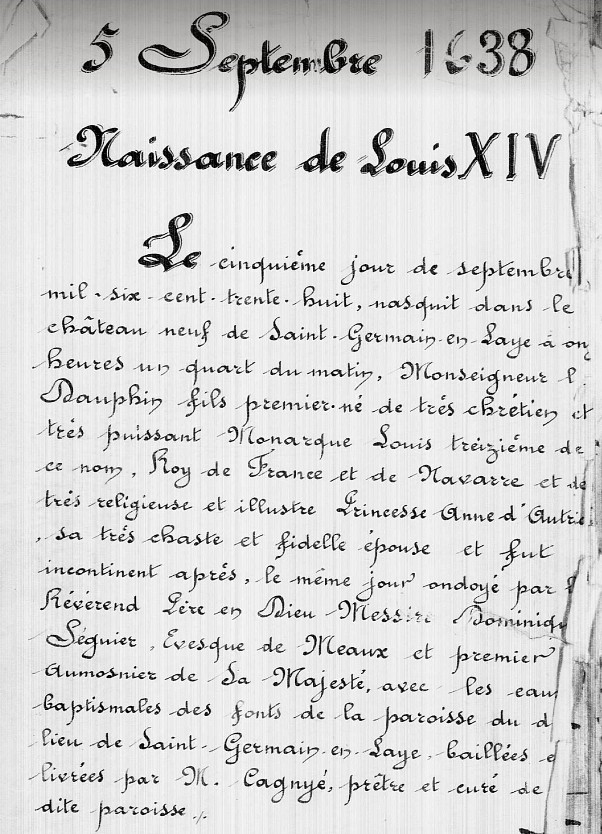 5 Septembre 1638
Naissance de Louis XIV
Le cinquiéme jour de septembre
mil-six-cent-trente-huit, nasquit dans le
château neuf de Saint-Germain-en-Laye à on
heures un quart du matin, Monseigneur l
Dauphin fils premier-né de trés chrétien et
trés puissant Monarque Louis treiziéme de
ce nom, Roy de France et de Navarre et de
trés religieuse et illustre Princesse Anne d'Autric
, sa trés chaste et fidelle épouse et fut
incontinent aprés, le même jour ondoyé par l
Révérend Pére en Dieu Messire Dominiqu
Séguier, Evesque de Meaux et premier
Aumosnier de Sa Majesté, avec les eau
baptismales des fonts de la paroisse du d
lieu de Saint-Germain-en-Laye, baillées e
livrées par M. Cagnyé, prêtre et curé de
dite paroisse./.